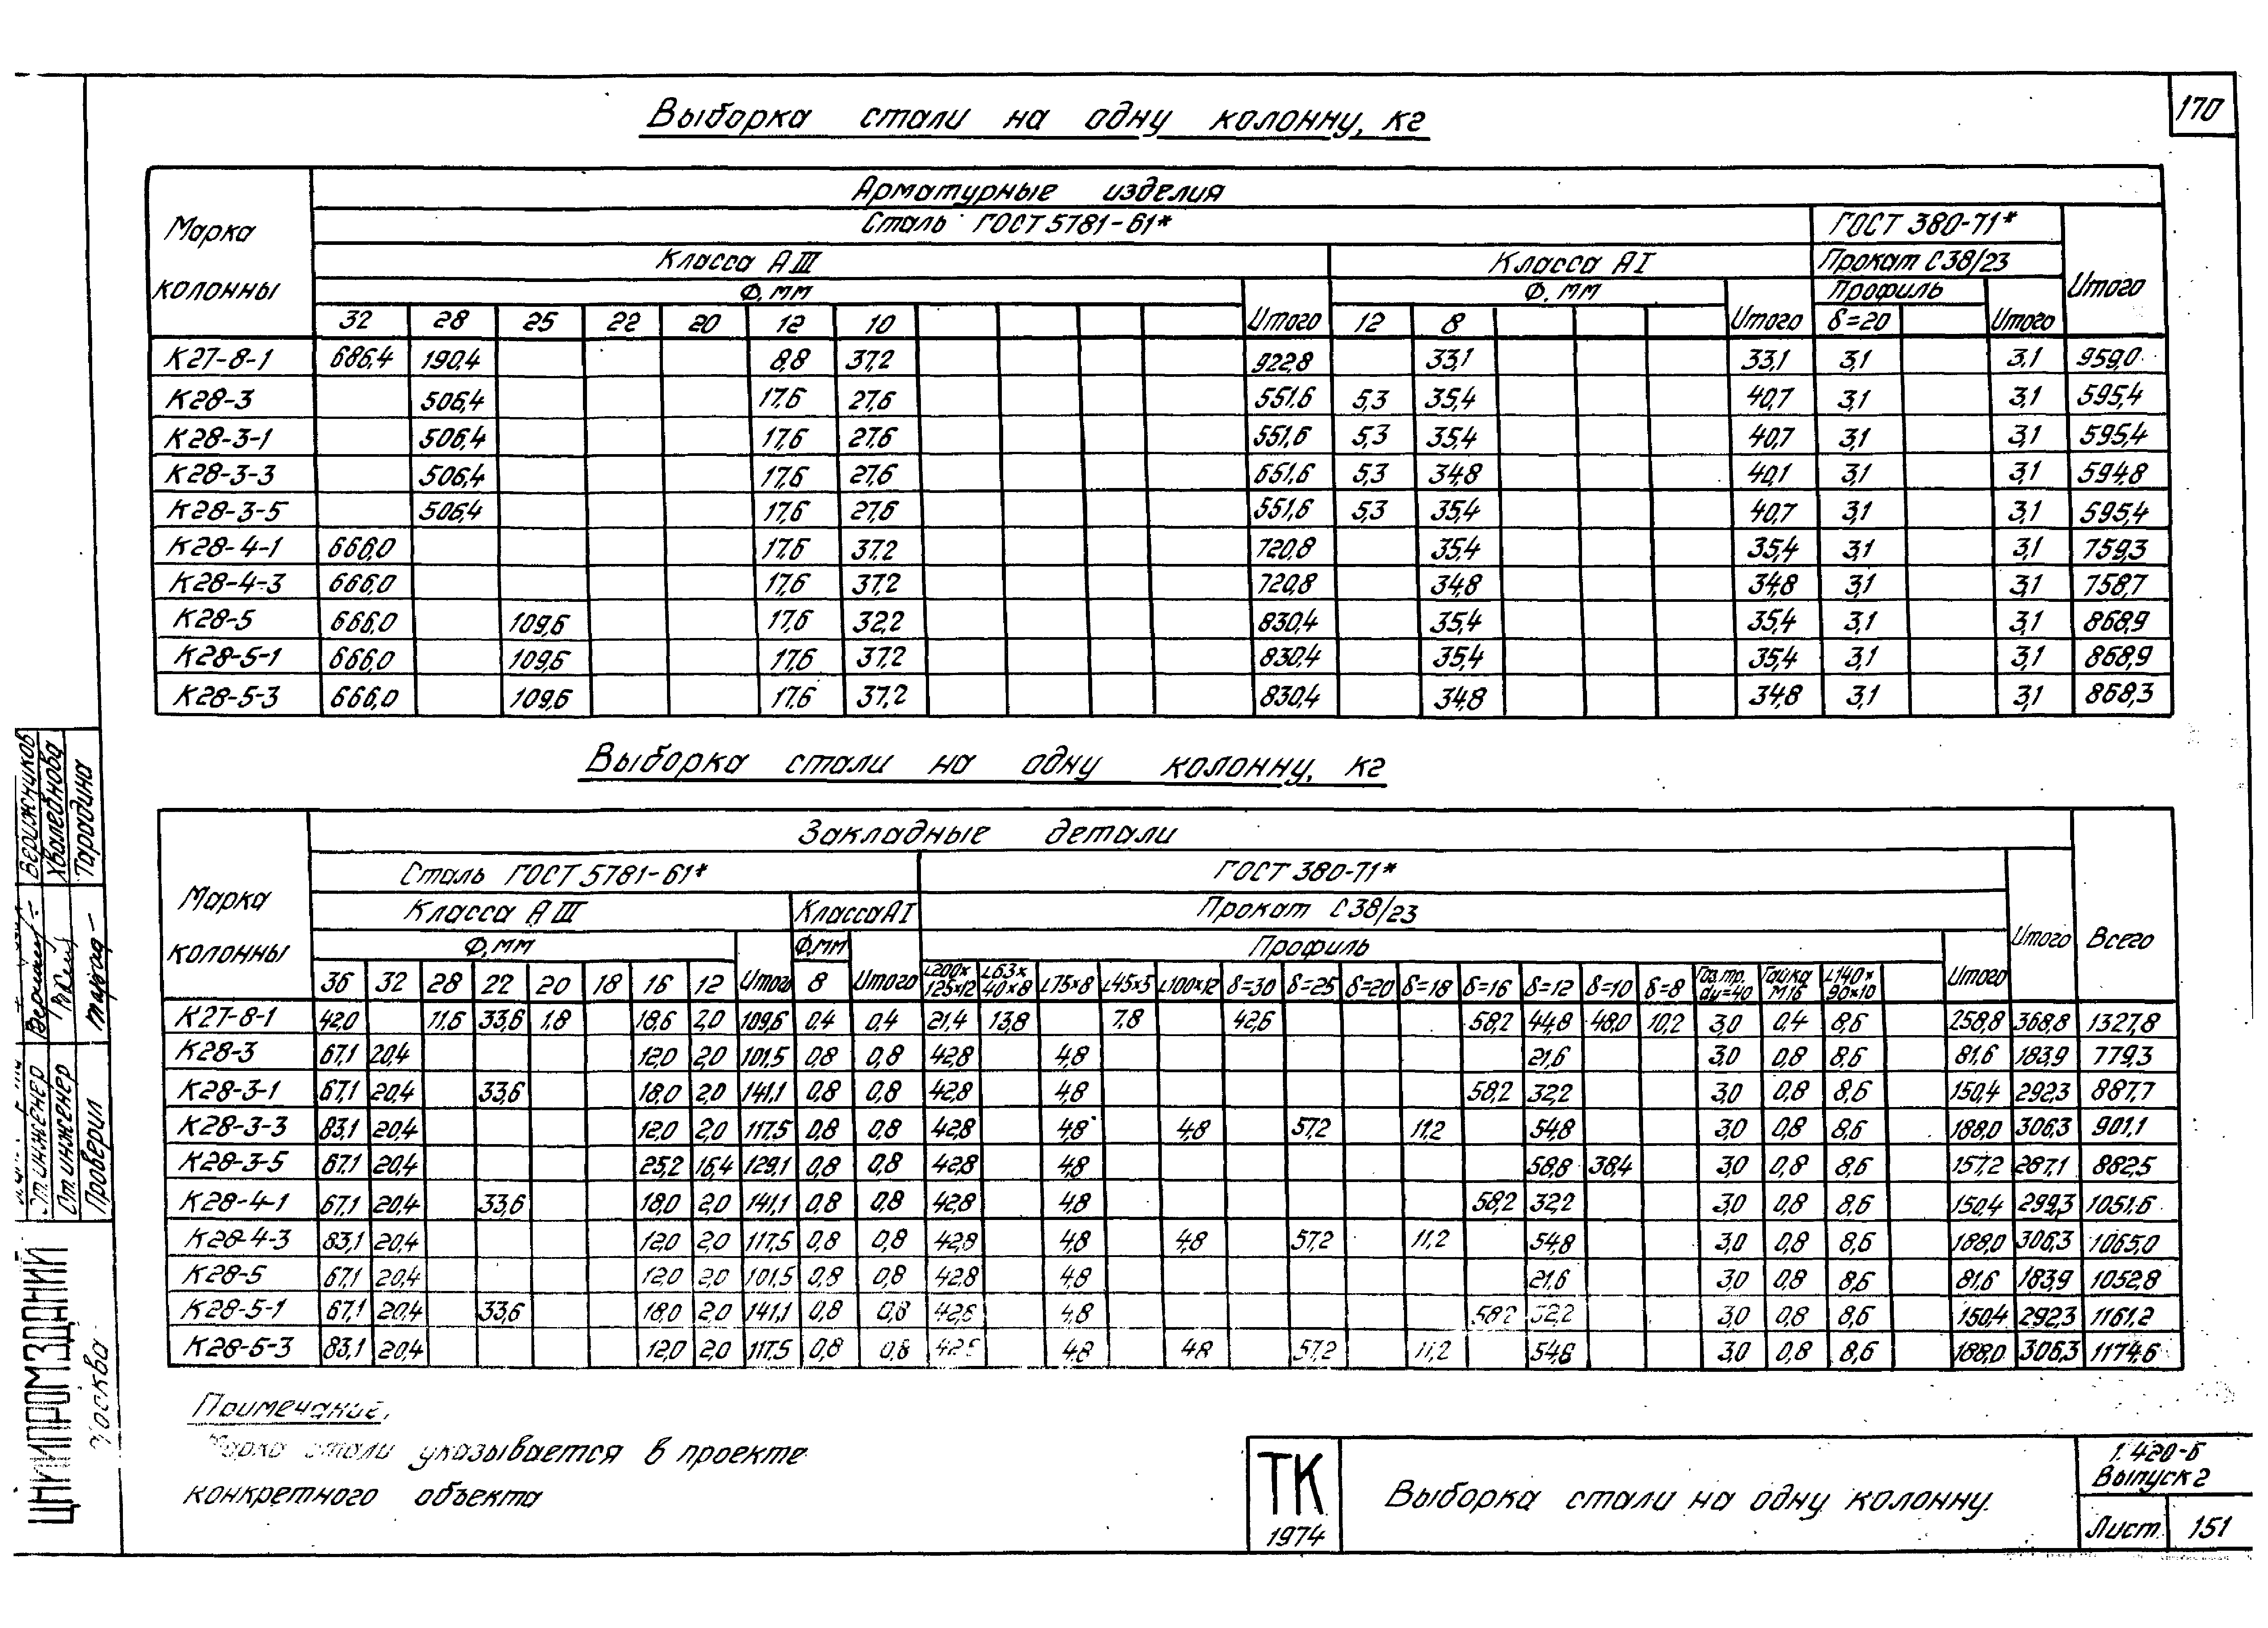 170
Выборка стали на одну колонну, кг
Марка колонны
Арматурные изделия
Сталь ГОСТ 5781-61* ГОСТ 380-71* Итого
Класса АIII Класса АI Прокат С38/23
Ф, мм Итого Ф, мм Итого Профиль Итого
32 28 25 22 20 12 10 12 8 δ=20
К27-8-1 686,4 190,4 8,8 37,2 922,8 33,1 33,1 3,1 3,1 959,0
К28-3 506,4 17,6 27,6 551,6 5,3 35,4 40,7 3,1 3,1 595,4
К28-3-1 506,4 17,6 27,6 551,6 5,3 35,4 40,7 3,1 3,1 595,4
К28-3-3 506,4 17,6 27,6 651,6 5,3 34,8 40,1 3,1 3,1 594,8
К28-3-5 506,4 17,6 27,6 551,6 5,3 35,4 40,7 3,1 3,1 595,4
К28-4-1 666,0 17,6 37,2 720,8 35,4 35,4 3,1 3,1 759,3
К28-4-3 666,0 17,6 37,2 720,8 34,8 34,8 3,1 3,1 758,7
К28-5 666,0 109,6 17,6 32,2 830,4 35,4 35,4 3,1 3,1 868,9
К28-5-1 666,0 109,6 17,6 37,2 830,4 35,4 35,4 3,1 3,1 868,9
К28-5-3 666,0 109,6 17,6 37,2 830,4 34,8 34,8 3,1 3,1 868,3
Выборка стали на одну колонну, кг
Марка колонны
Закладные детали Всего
Сталь ГОСТ 5781-61* ГОСТ 380-71* Итого
Класса АIII Класса АI Прокат С38/23
Ф, мм Итого Ф, мм Итого Профиль Итого
36 32 28 22 20 18 16 12 8 L200×125×12 L63×40×8 L75×8 L45×5 L100×12 δ=30 δ=25 δ=20 δ=18 δ=16 δ=12 δ=10 δ=8 Газ.тр. dу=40 Гайка М16 L140×90×10
К27-8-1 42,0 11,6 33,6 1,8 18,6 2,0 109,6 0,4 0,4 21,4 13,8 7,8 42,6 58,2 44,8 48,0 10,2 3,0 0,4 8,6 258,8 368,8 1327,8
К28-3 67,1 20,4 12,0 2,0 101,5 0,8 0,8 42,8 4,8 21,6 3,0 0,8 8,6 81,6 183,9 779,3
К28-3-1 67,1 20,4 33,6 18,0 2,0 141,1 0,8 0,8 42,8 4,8 58,2 32,2 3,0 0,8 8,6 150,4 292,3 887,7
К28-3-3 83,1 20,4 12,0 2,0 117,5 0,8 0,8 42,8 4,8 4,8 57,2 11,2 54,8 3,0 0,8 8,6 188,0 306,3 901,1
К28-3-5 67,1 20,4 25,2 16,4 129,1 0,8 0,8 42,8 4,8 58,8 38,4 3,0 0,8 8,6 157,2 287,1 882,5
К28-4-1 67,1 20,4 33,6 18,0 2,0 141,1 0,8 0,8 42,8 4,8 58,2 32,2 3,0 0,8 8,6 150,4 299,3 1051,6
К28-4-3 83,1 20,4 12,0 2,0 117,5 0,8 0,8 42,8 4,8 4,8 57,2 11,2 54,8 3,0 0,8 8,6 188,0 306,3 1065,0
К28-5 67,1 20,4 12,0 2,0 101,5 0,8 0,8 42,8 4,8 21,6 3,0 0,8 8,6 81,6 183,9 1052,8
К28-5-1 67,1 20,4 33,6 18,0 2,0 141,1 0,8 0,8 42,8 4,8 58,2 32,2 3,0 0,8 8,6 150,4 292,3 1161,2
К28-5-3 83,1 20,4 12,0 2,0 117,5 0,8 0,8 42,8 4,8 4,8 57,2 11,2 54,8 3,0 0,8 8,6 188,0 306,3 1174,6
Примечание.
Марка стали указывается в проекте
конкретного объекта
ТК
1974
Выборка стали на одну колонну.
1.420-6
Выпуск 2
Лист 151
Ст. инженер Верижников
Ст. инженер Хваледнова
Проверил Тарадина
ЦНИИПРОМЗДАНИЙ
Москва